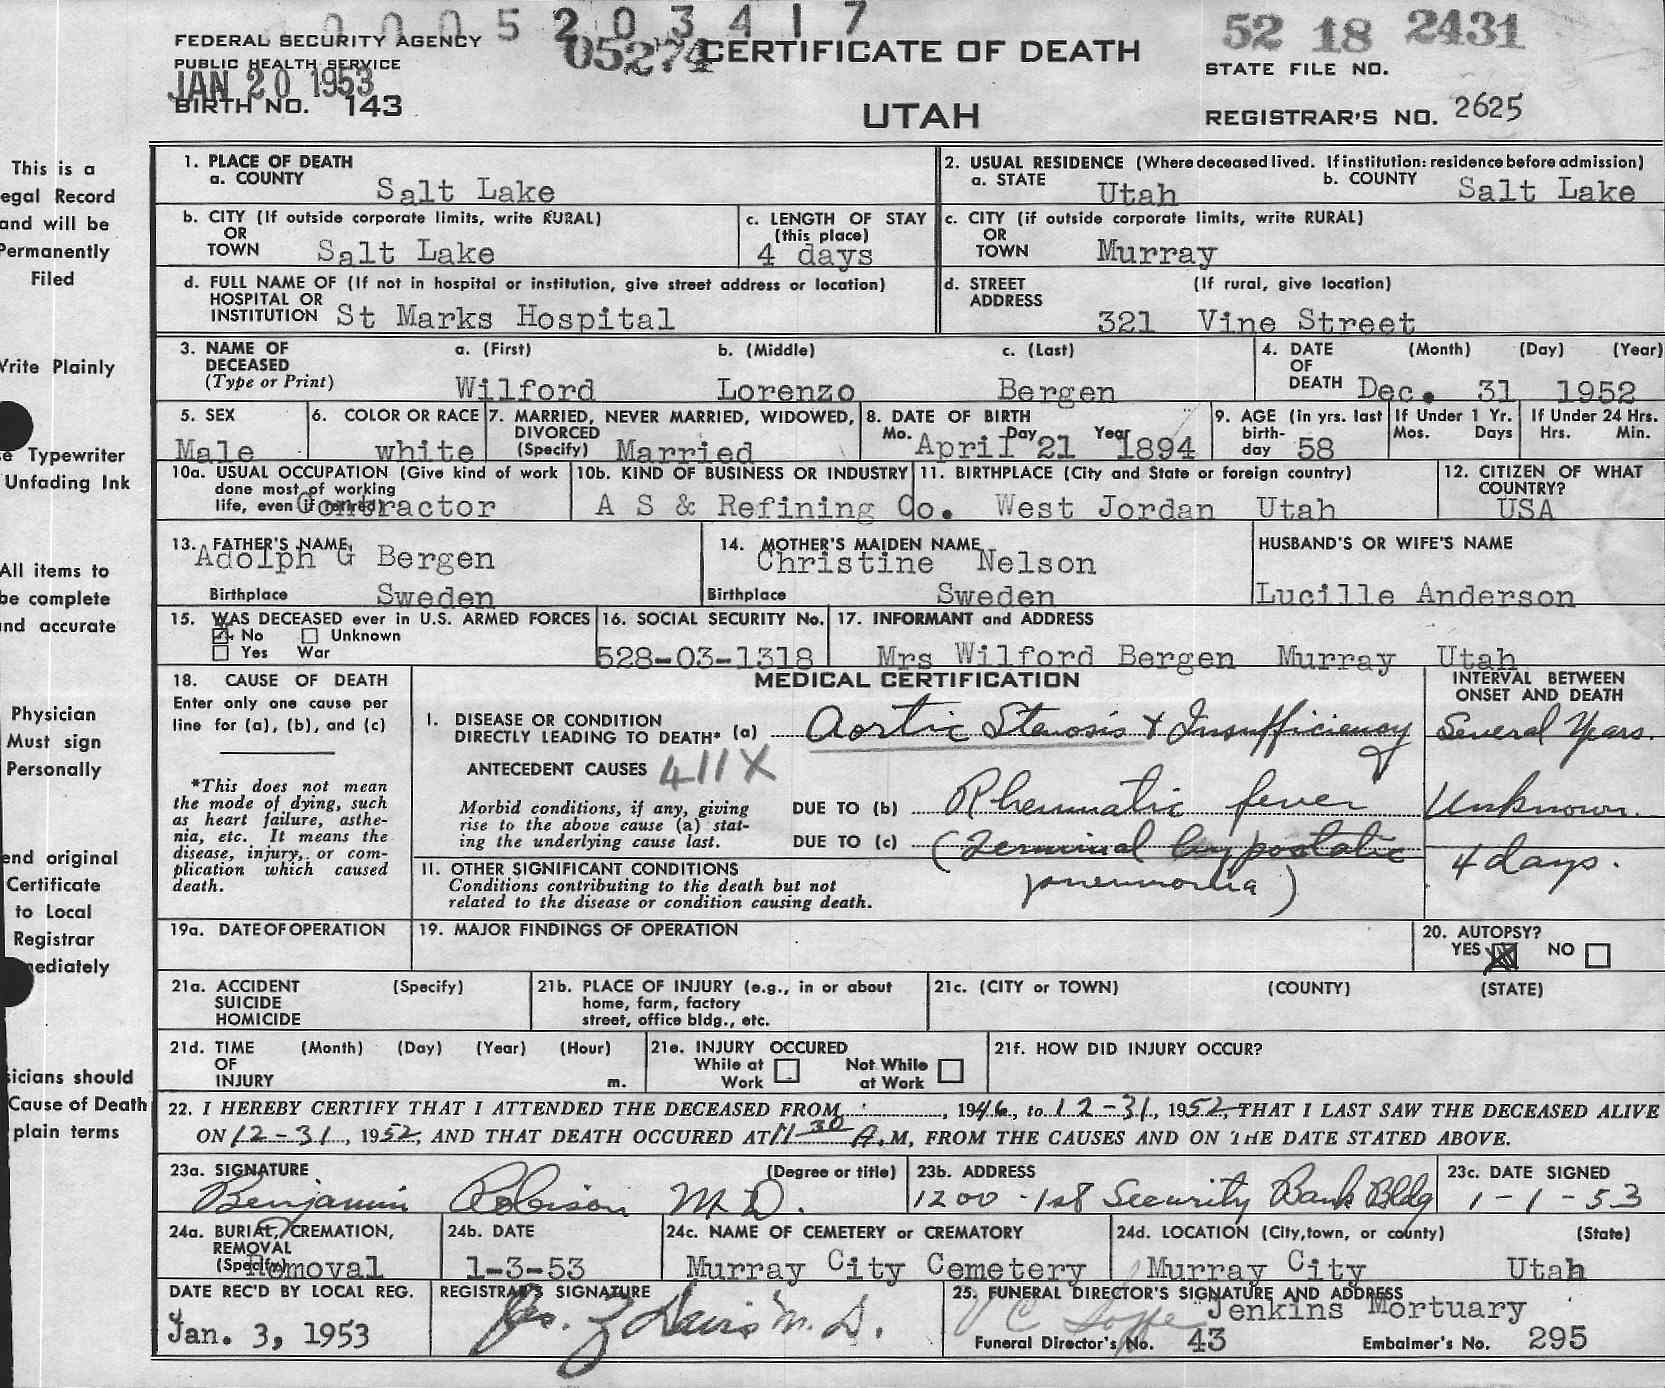 0 0 0 5 2 0 3 4 1 7
FEDERAL SECURITY AGENCY
PUBLIC HEALTH SERVICE
JAN 20 1953
BIRTH NO. 143
05274
CERTIFICATE OF DEATH
UTAH
52 18 2431
STATE FILE NO.
REGISTRAR'S NO. 2625
This is a
egal Record
and will be
Permanently
Filed
Write Plainly
e Typewriter
Unfading Ink
All items to
be complete
and accurate
Physician
Must sign
Personally
end original
Certificate
to Local
Registrar
mediately
sicians should
Cause of Death
plain terms
1. PLACE OF DEATH
a. COUNTY Salt Lake
2. USUAL RESIDENCE (Where deceased lived. If institution: residence before admission)
a. STATE Utah b. COUNTY Salt Lake
b. CITY (If outside corporate limits, write RURAL)
OR
TOWN Salt Lake
c. LENGTH OF STAY
(this place)
4 days
c. CITY (if outside corporate limits, write RURAL)
OR
TOWN Murray
d. FULL NAME OF (If not in hospital or institution, give street address or location)
HOSPITAL OR
INSTITUTION St Marks Hospital
d. STREET (If rural, give location)
ADDRESS
321 Vine Street
3. NAME OF a. (First) b. (Middle) c. (Last)
DECEASED
(Type or Print) Wilford Lorenzo Bergen
4. DATE (Month) (Day) (Year)
OF
DEATH Dec. 31 1952
5. SEX
Male
6. COLOR OR RACE
white
7. MARRIED, NEVER MARRIED, WIDOWED,
DIVORCED
(Specify) Married
8. DATE OF BIRTH
Mo. Day Year
April 21 1894
9. AGE (in yrs. last
birth-
day 58
If Under 1 Yr.
Mos. Days
If Under 24 Hrs.
Hrs. Min.
10a. USUAL OCCUPATION (Give kind of work
done most of working
life, even if retired) Contractor
10b. KIND OF BUSINESS OR INDUSTRY
A S & Refining Co.
11. BIRTHPLACE (City and State or foreign country)
West Jordan Utah
12. CITIZEN OF WHAT
COUNTRY?
USA
13. FATHER'S NAME
Adolph G Bergen
Birthplace Sweden
14. MOTHER'S MAIDEN NAME
Christine Nelson
Birthplace Sweden
HUSBAND'S OR WIFE'S NAME
Lucille Anderson
15. WAS DECEASED ever in U.S. ARMED FORCES
No Unknown
Yes War
16. SOCIAL SECURITY No.
528-03-1318
17. INFORMANT and ADDRESS
Mrs Wilford Bergen Murray Utah
18. CAUSE OF DEATH
Enter only one cause per
line for (a), (b), and (c)
*This does not mean
the mode of dying, such
as heart failure, asthe-
nia, etc. It means the
disease, injury, or com-
plication which caused
death.
MEDICAL CERTIFICATION
INTERVAL BETWEEN
ONSET AND DEATH
I. DISEASE OR CONDITION
DIRECTLY LEADING TO DEATH* (a) Aortic Stenosis & Insufficiency Several Years.
ANTECEDENT CAUSES 411X
Morbid conditions, if any, giving
rise to the above cause (a) stat-
ing the underlying cause last.
DUE TO (b) Rheumatic fever Unknown.
DUE TO (c) (Terminal hypostatic
pneumonia) 4 days.
II. OTHER SIGNIFICANT CONDITIONS
Conditions contributing to the death but not
related to the disease or condition causing death.
19a. DATE OF OPERATION
19. MAJOR FINDINGS OF OPERATION
20. AUTOPSY?
YES NO
21a. ACCIDENT (Specify)
SUICIDE
HOMICIDE
21b. PLACE OF INJURY (e.g., in or about
home, farm, factory
street, office bldg., etc.
21c. (CITY or TOWN) (COUNTY) (STATE)
21d. TIME (Month) (Day) (Year) (Hour)
OF
INJURY m.
21e. INJURY OCCURED
While at Work
Not While at Work
21f. HOW DID INJURY OCCUR?
22. I HEREBY CERTIFY THAT I ATTENDED THE DECEASED FROM , 1946, to 12-31, 1952, THAT I LAST SAW THE DECEASED ALIVE
ON 12-31, 1952, AND THAT DEATH OCCURED AT 11 30 A.M, FROM THE CAUSES AND ON THE DATE STATED ABOVE.
23a. SIGNATURE (Degree or title)
Benjamin Robison M.D.
23b. ADDRESS
1200 - 1st Security Bank Bldg
23c. DATE SIGNED
1-1-53
24a. BURIAL, CREMATION,
REMOVAL
(Specify) Removal
24b. DATE
1-3-53
24c. NAME OF CEMETERY or CREMATORY
Murray City Cemetery
24d. LOCATION (City, town, or county) (State)
Murray City Utah
DATE REC'D BY LOCAL REG.
Jan. 3, 1953
REGISTRAR'S SIGNATURE
Davis M. D.
25. FUNERAL DIRECTOR'S SIGNATURE AND ADDRESS
Jenkins Mortuary
Funeral Director's No. 43 Embalmer's No. 295